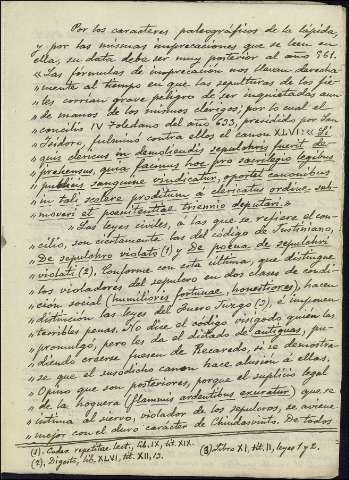 Por los caracteres paleográficos de la lápida,
y por las mismas imprecaciones que se leen en
ella, su data debe ser muy posterior al año 561.
"Las fórmulas de imprecacion nos llevan derecha-
"mente al tiempo en que las sepulturas de los fie-
"les corrían grave peligro de ser inquietadas aun
"de manos de los mismos clérigos; por lo cual el
"concilio IV Toledano del año 633, presidido por San
"Isidoro, fulminó contra ellos el canon XLVI: «Si
"quis clericus in demoliendis sepulchris fuerit de-
"prehensus, quia facinus hoc pro sacrilegio legibus
"publicis sanguine vindicatur, oportet canonibus
"in tali scelere proditum a clericatus ordine sub-
"moveri et poenitentiae triennio deputari.»
"Las leyes civiles, á las que se refiere el con-
"cilio, son ciertamente las del código de Justiniano,
"De sepulchro violato (1) y De poena de sepulchri
"violati (2). Conforme con esta última, que distingue
"los violadores del sepulcro en dos clases de condi-
"ción social (humilioris fortunae, honestiores), hacen
"distinción las leyes del Fuero Juzgo (3), é imponen
"terribles penas. No dice el código visigodo quién las
"promulgó, pero les da el dictado de antiguas, pu-
"diendo creerse fuesen de Recaredo, si se demostra-
"se que el susodicho canon hace alusión á ellas.
"Opino que son posteriores, porque el suplicio legal
"de la hoguera (flammis ardentibus exuratur) que se
"intima al siervo, violador de los sepulcros, se aviene
"mejor con el duro carácter de Chindasvinto. De todos
(1). Codex repetitae lect., lib. IX, tit. XIX.
(2), Digesto, lib. XLVI, tit XII, 13.
(3) Libro XI, tit. II, leyes 1 y 2.